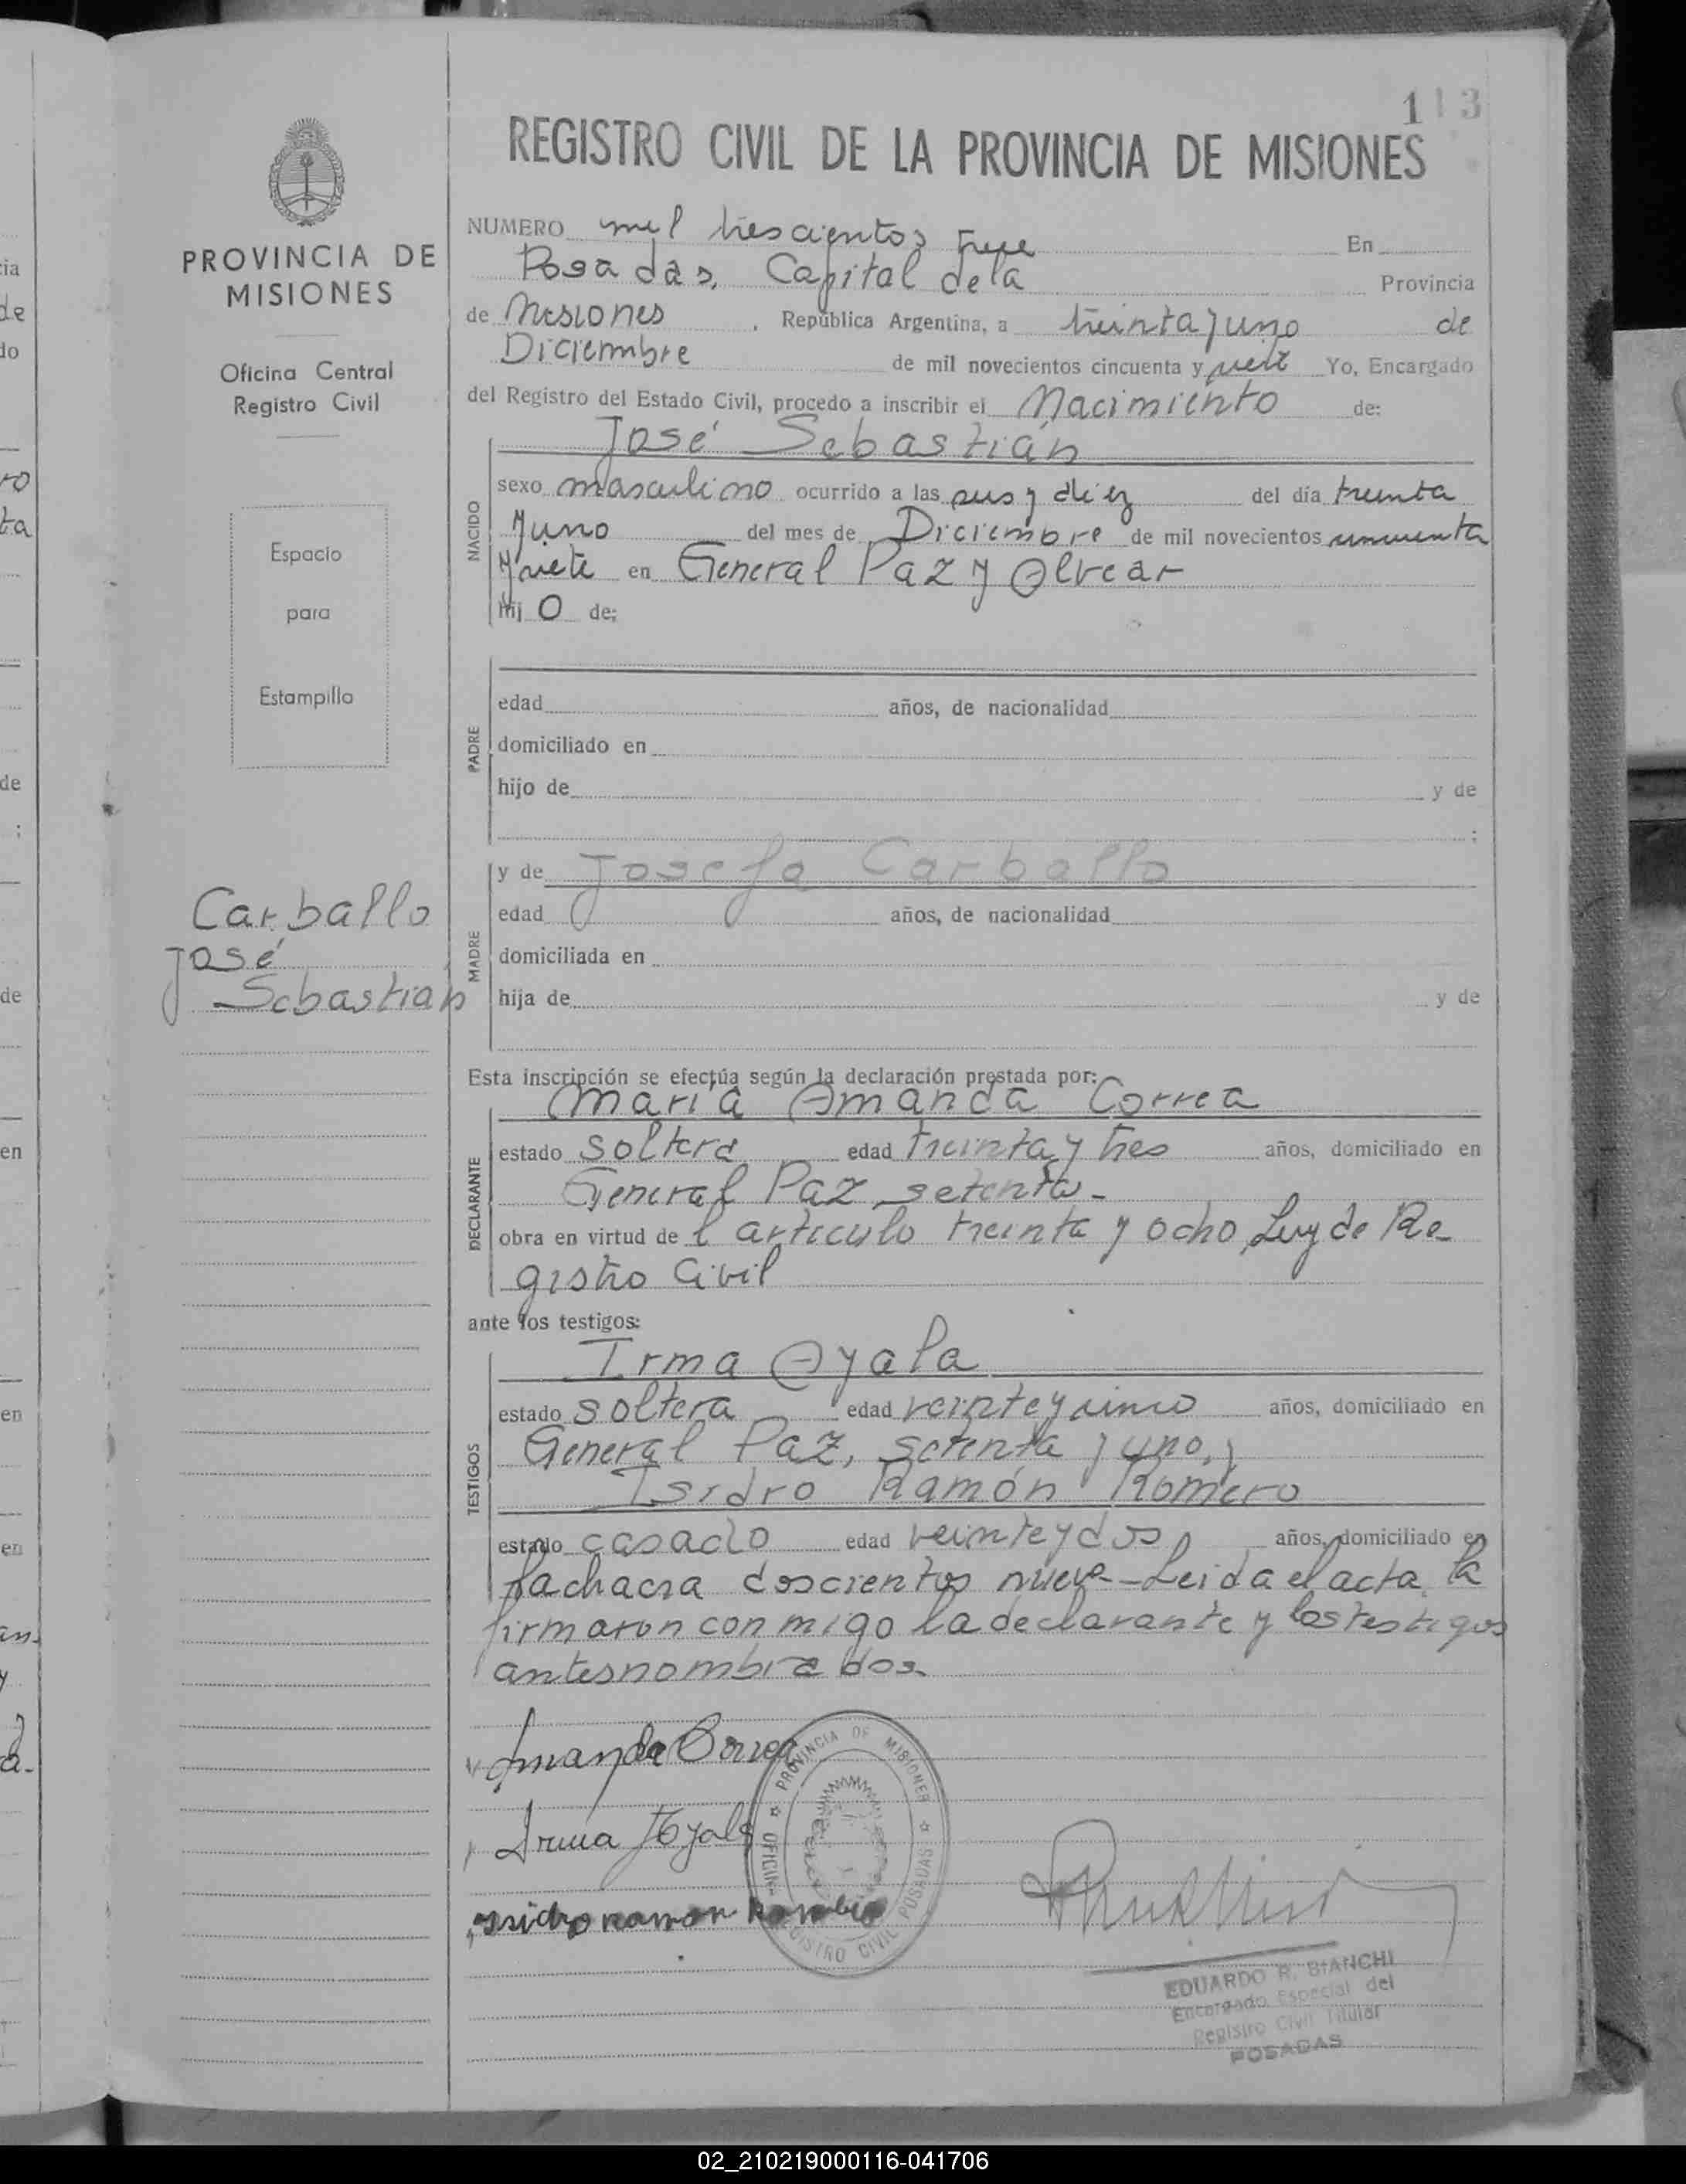 113
REGISTRO CIVIL DE LA PROVINCIA DE MISIONES
PROVINCIA DE
MISIONES
Oficina Central
Registro Civil
Espacio
para
Estampilla
Carballo
José
Sebastián
NUMERO mil trescientos trece En
Posadas, Capital dela Provincia
de Misiones, República Argentina, a treinta y uno de
Diciembre de mil novecientos cincuenta y siete Yo, Encargado
del Registro del Estado Civil, procedo a inscribir el Nacimiento de:
José Sebastián
NACIDO
sexo masculino ocurrido a las seis y diez del día treinta
y uno del mes de Diciembre de mil novecientos cincuenta
y siete en General Paz y Alvear
hijo de:
PADRE
edad años, de nacionalidad
domiciliado en
hijo de y de
;
MADRE
y de Josefa Carballo
edad años, de nacionalidad
domiciliada en
hija de y de
Esta inscripción se efectúa según la declaración prestada por:
DECLARANTE
María Amanda Correa
estado soltera edad treinta y tres años, domiciliado en
General Paz setenta-
obra en virtud de l articulo treinta y ocho Ley de Re-
gistro Civil
ante los testigos:
TESTIGOS
Irma Ayala
estado soltera edad veinte y cinco años, domiciliado en
General Paz, setenta y uno, y
Isidro Ramón Romero
estado casado edad veinte y dos años, domiciliado en
la chacra doscientos nueve-Leida el acta, la
firmaron conmigo la declarante y los testigos
antes nombrados
Amanda Correa
Irma Ayala
Isidro Ramon
PROVINCIA DE MISIONES
POSADAS
REGISTRO CIVIL
EDUARDO R. BIANCHI
Encargado Especial del
Registro Civil Titular
POSADAS
02_210219000116-041706